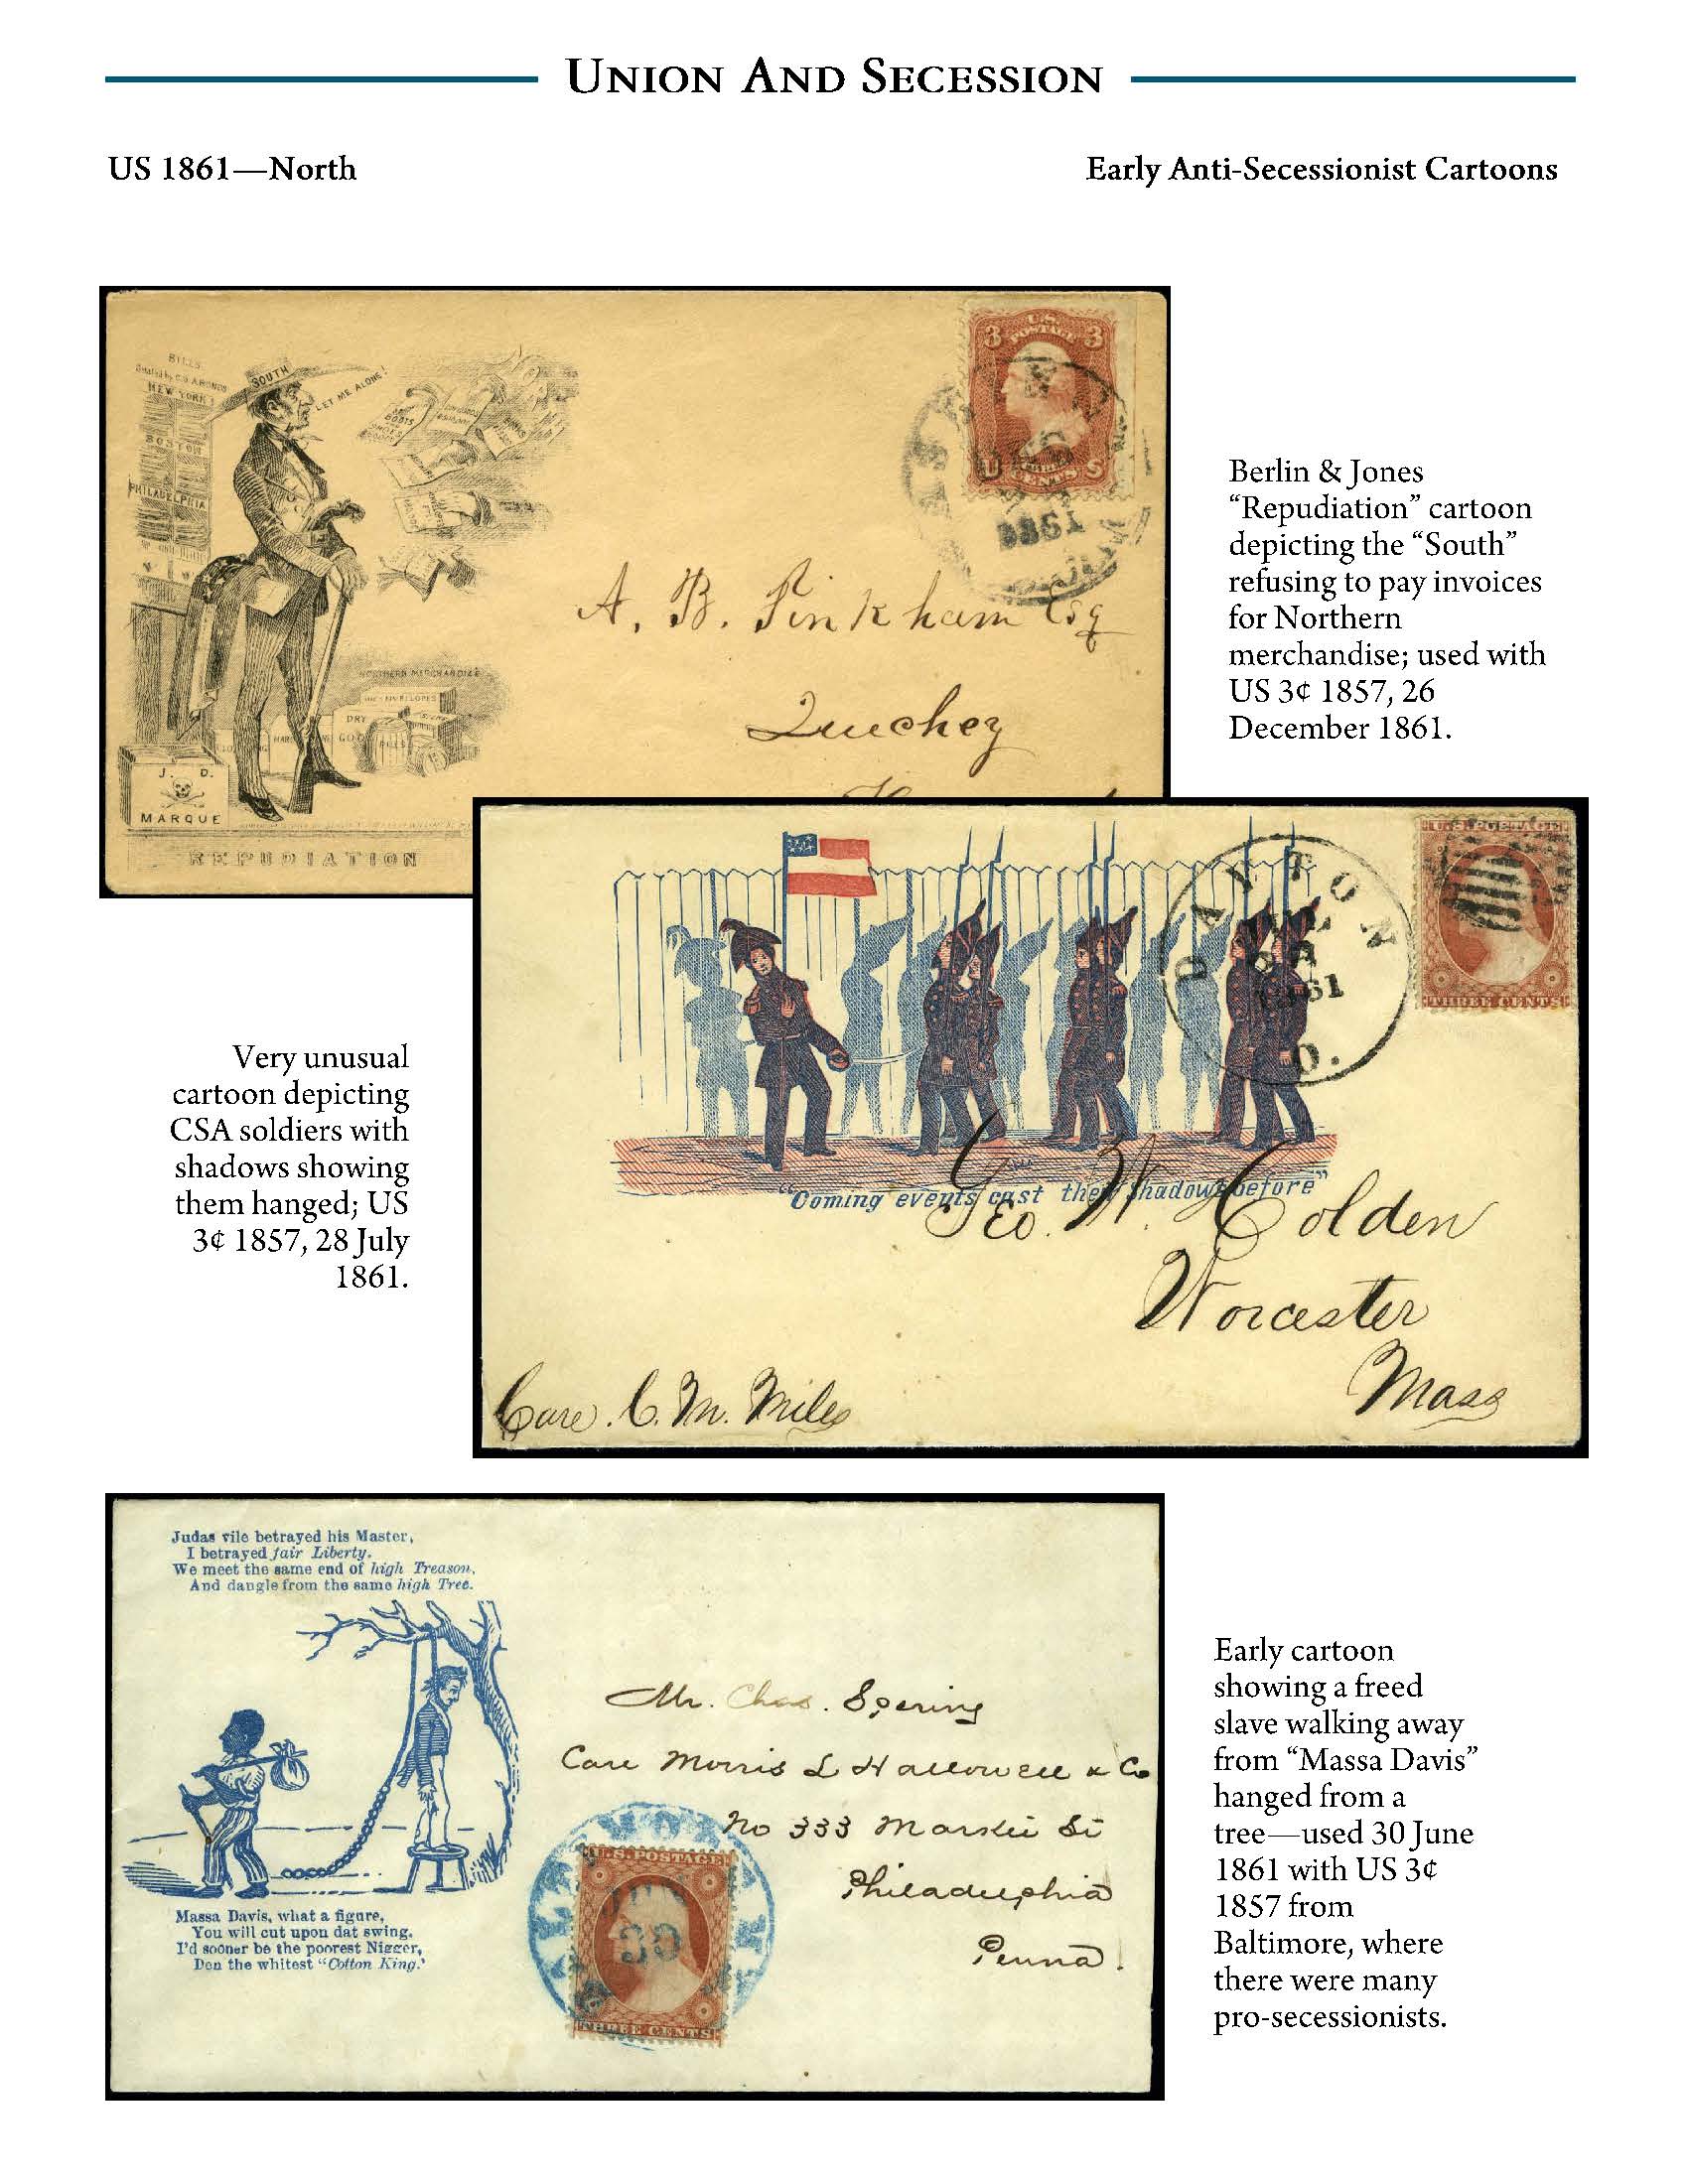 UNION AND SECESSION
US 1861—North
Early Anti-Secessionist Cartoons
BILLS
NEW YORK
BOSTON
PHILADELPHIA
SOUTH
LET ME ALONE!
BOOTS
SHOES
NORTHERN MERCHANDIZE
ENVELOPES
DRY
J. D.
MARQUE
REPUDIATION
U.S.
POSTAGE
3 3
U S
CENTS
1861
A. B. Pinkham Esq
Quechey
Berlin & Jones
“Repudiation” cartoon
depicting the “South”
refusing to pay invoices
for Northern
merchandise; used with
US 3¢ 1857, 26
December 1861.
DAYTON
1861
O.
U.S. POSTAGE
THREE CENTS
“Coming events cast their shadows before”
Geo. W. Colden
Worcester
Mass
Care. C. M. Miles
Very unusual
cartoon depicting
CSA soldiers with
shadows showing
them hanged; US
3¢ 1857, 28 July
1861.
Judas vile betrayed his Master,
I betrayed fair Liberty.
We meet the same end of high Treason,
And dangle from the same high Tree.
Massa Davis, what a figure,
You will cut upon dat swing.
I'd sooner be the poorest Nigger,
Den the whitest “Cotton King.'
Mr. Chas. Spering
Care Morris L Hallowell & Co
No 333 Market St
Philadelphia
Penna.
U.S. POSTAGE
30
THREE CENTS
Early cartoon
showing a freed
slave walking away
from “Massa Davis”
hanged from a
tree—used 30 June
1861 with US 3¢
1857 from
Baltimore, where
there were many
pro-secessionists.